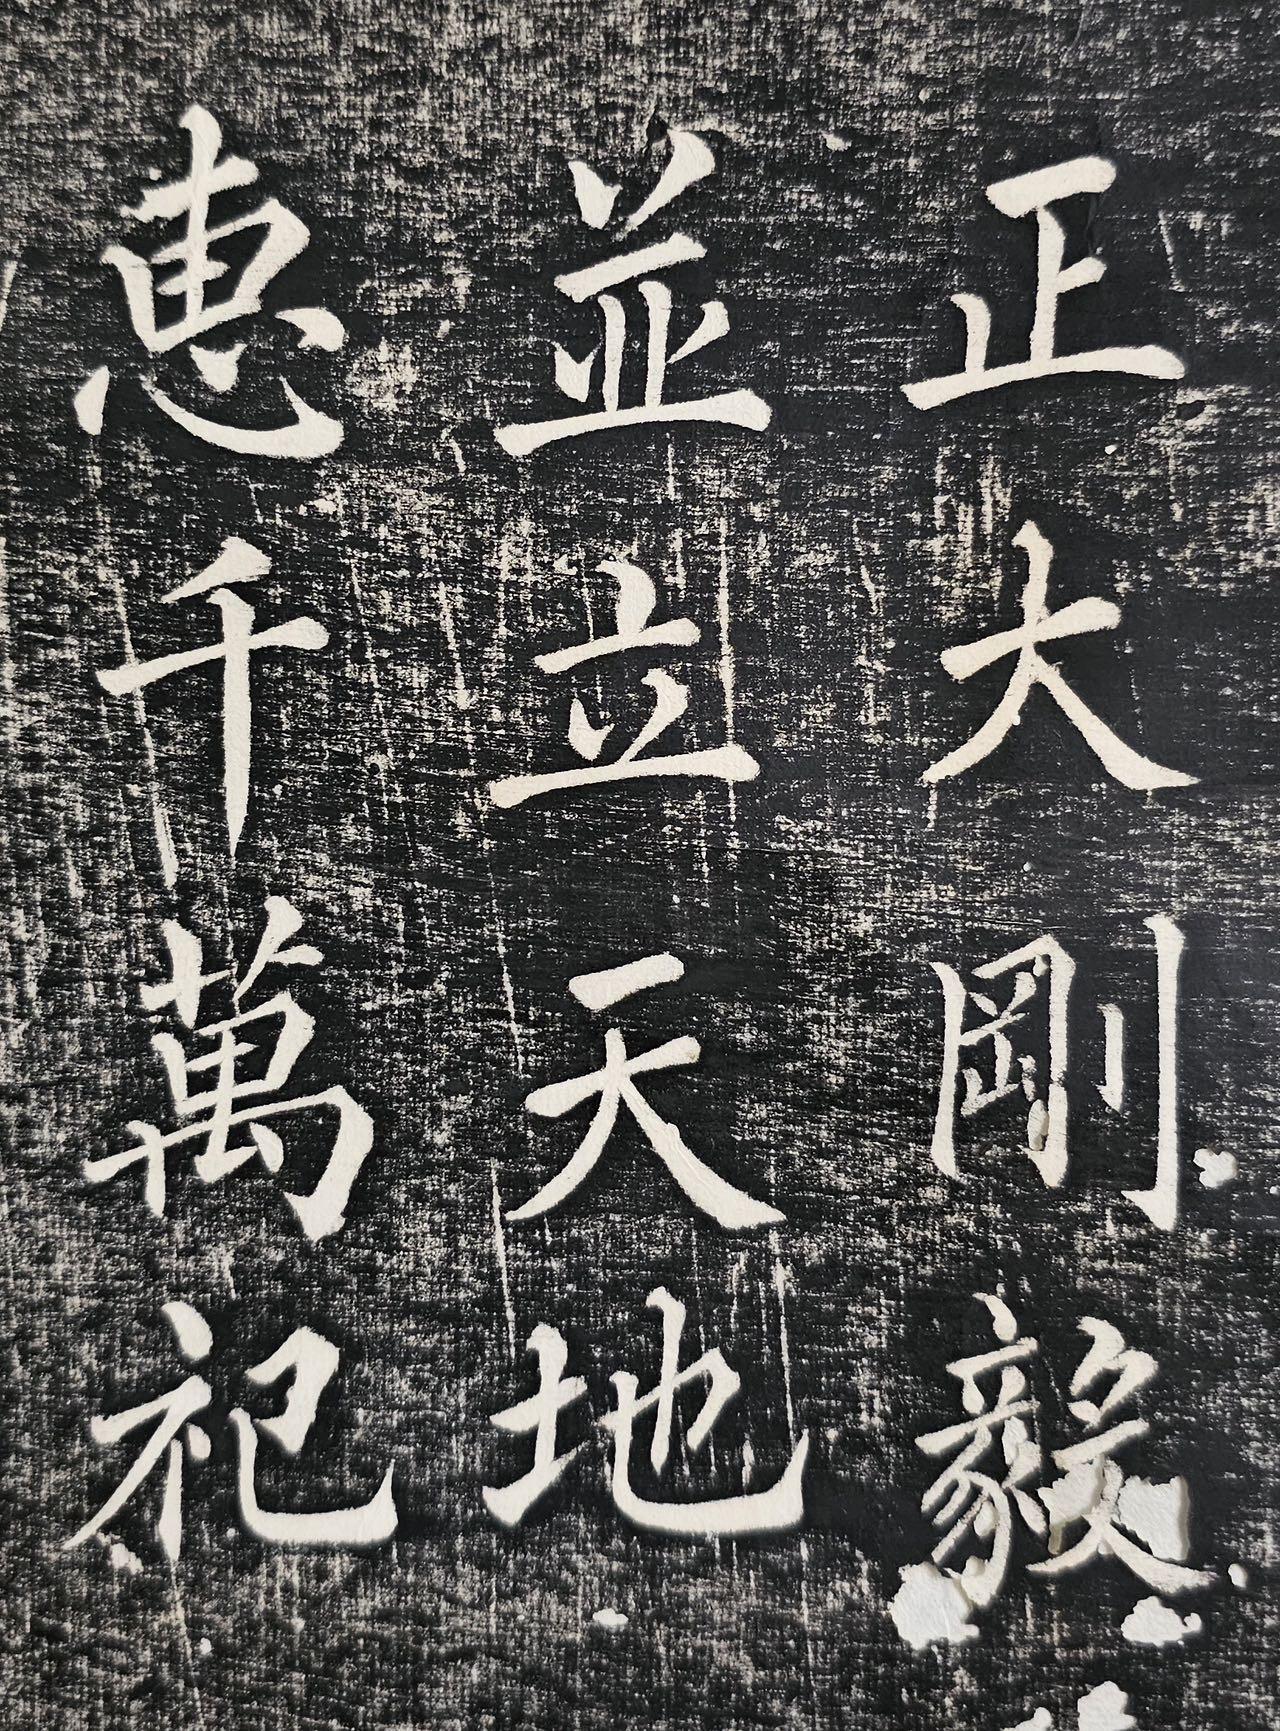 正大剛毅
並立天地
恵千萬祀